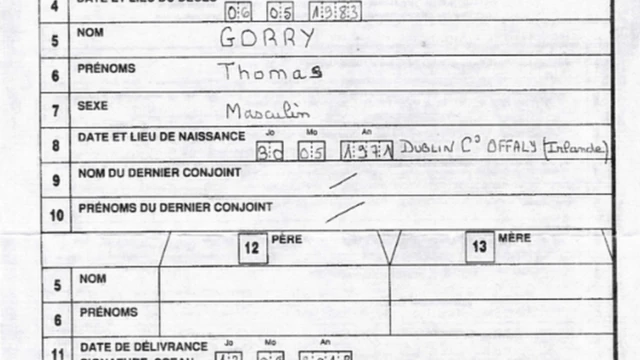 4 DATE ET LIEU DU DÉCÈS 06 05 1983
5 NOM GORRY
6 PRÉNOMS Thomas
7 SEXE Masculin
8 DATE ET LIEU DE NAISSANCE Jo Mo An 05 1971 DUBLIN Cº OFFALY (Irlande)
9 NOM DU DERNIER CONJOINT
10 PRÉNOMS DU DERNIER CONJOINT
12 PÈRE 13 MÈRE
5 NOM
6 PRÉNOMS
11 DATE DE DÉLIVRANCE Jo Mo An